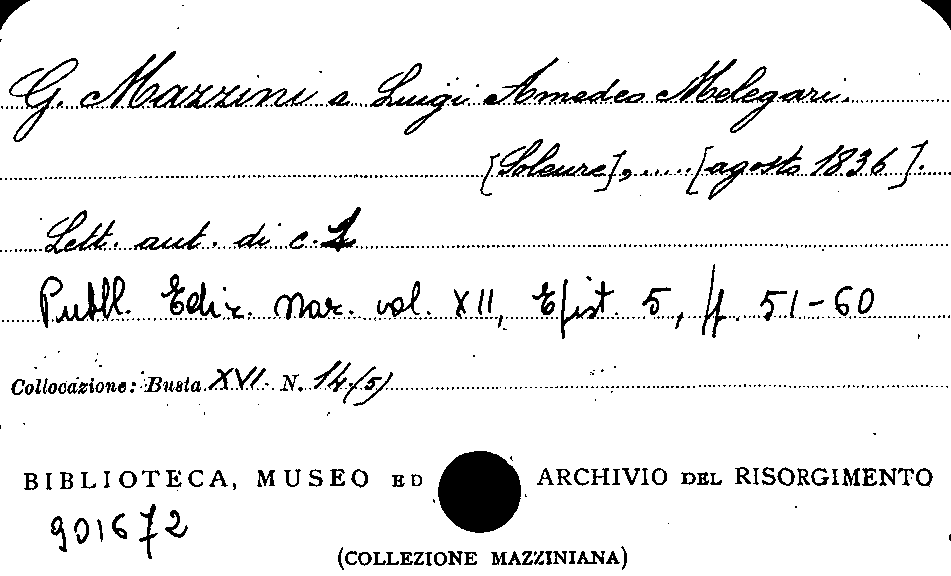 G. Mazzini a Luigi Amedeo Melegari.
[Soleure], ..... [agosto 1836].
Lett. aut. di c. 1
Pubbl. Ediz. Naz. vol. XII, Epist. 5, pp. 51-60
Collocazione: Busta XVI. N. 14(5)
BIBLIOTECA, MUSEO ED ARCHIVIO DEL RISORGIMENTO
901672
(COLLEZIONE MAZZINIANA)